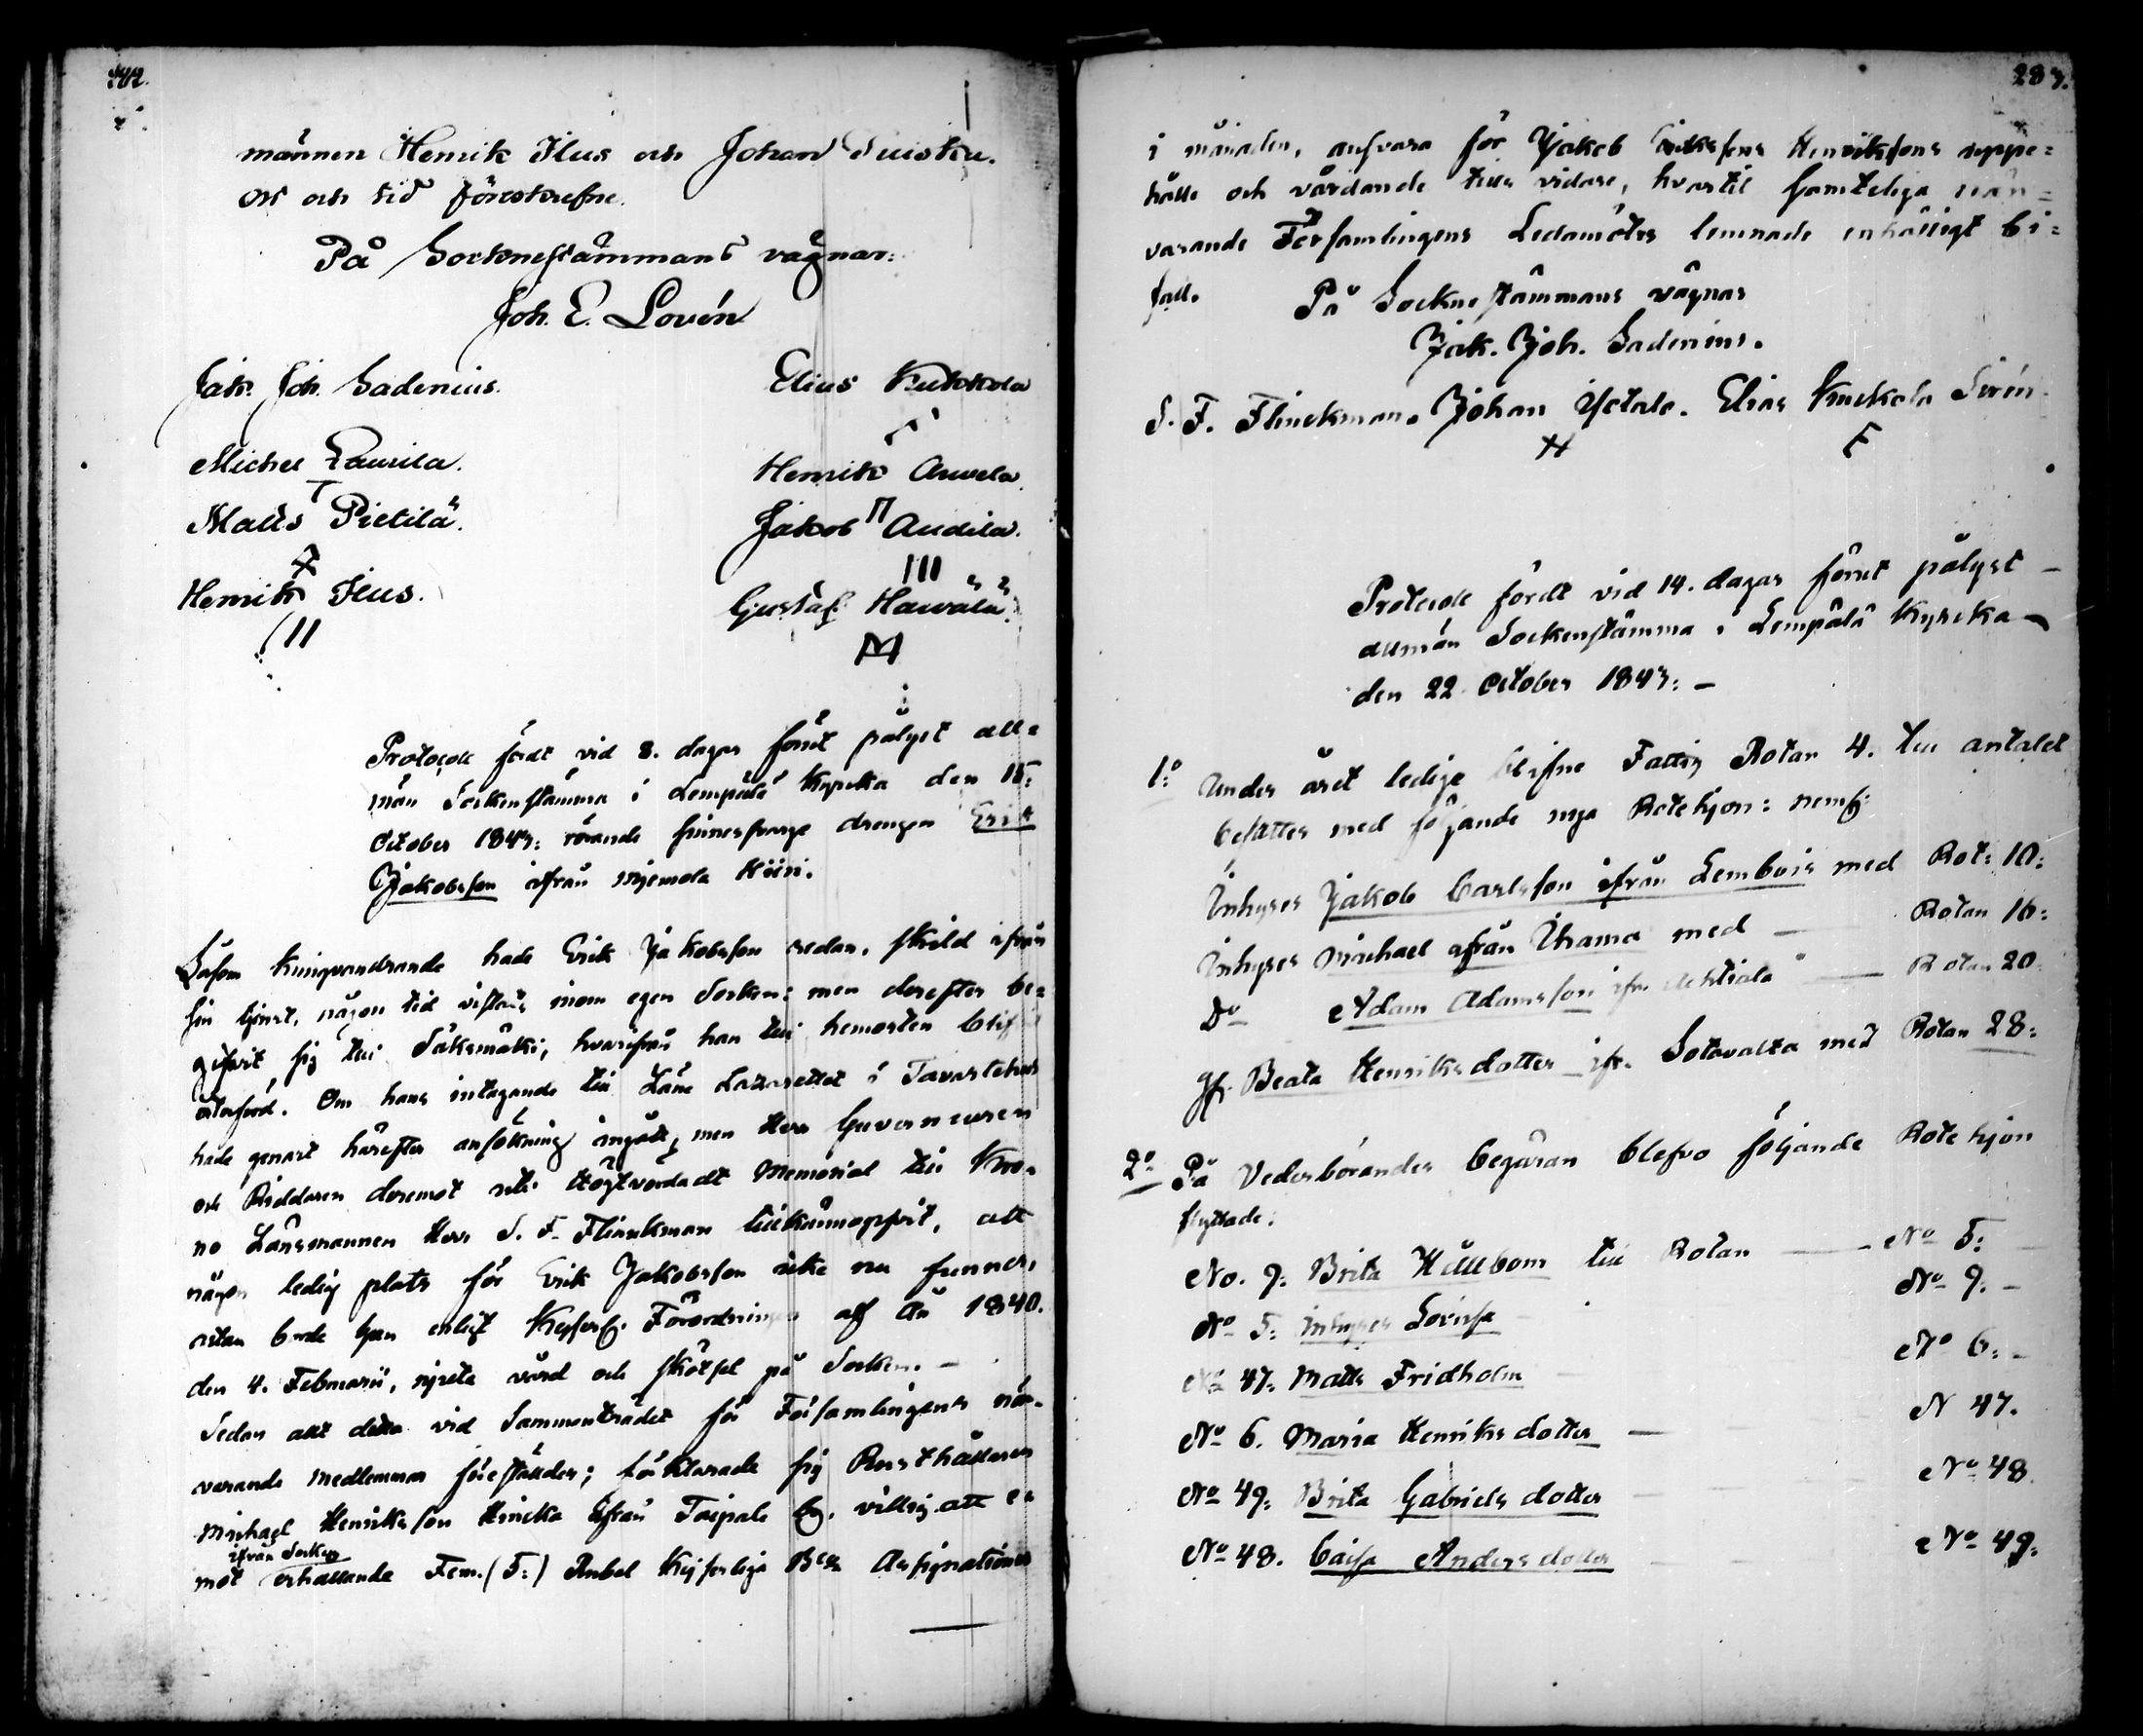 282.
männen Henrik Ilus och Johan Tuisku.
Ort och tid föreskrefne.
På Sockneståmmans vägnar:
Joh. E. Lovén
Jak. Joh. Sadenius.
Elias Kukkola
Michel Laurila.
Henrik Anvela.
Matts Pietilä.
Jakob Andila.
Henrik Ilus.
III
Gustaf Hawälä.
M
Protocoll fördt vid 8. dagar förut pålyst all=
män Sockenstämma i Lempälä Kyrcka den 15:
October 1843: rörande sinnessvage drengen Erik
Jakobsson ifrån Kiiri.
Såsom kringvandrande hade Erik Jakobsson redan, skild ifrån
sin tjenst, någon tid vistats inom egen Socken: men derefter be=
gifvit sig till Säksmäki, hvarifrån han till hemorten blifvit
återförd. Om hans intagande till Läns Lazarettet i Tavastehus
hade genast härefter ansökning ingått, men Herr Guverneuren
och Riddaren deremot uti Högtvördadt Memorial till Kro-
no Länsmannen Herr S. F. Flinckman tillkännagifvit, att
någon ledig plats för Erik Jakobsson icke nu funnes,
utan borde han enligt Kejserl: Förordningen af År 1840.
den 4. Februarii, njuta vård och skötsel på Socken. –
Sedan allt detta vid Sammanträdet för Församlingens när-
varande medlemmar föreställdes; förklarade sig Rusthållaren
Michael Henriksson Hincka ifrån Taipale by, villig att e-
ifrån Socken
mot erhållande Fem (5:) Rubel Kejserliga Bco Assignationer
283.
i månaden, ansvara för Jakob Henriksons uppe=
hålle och vårdande tills vidare, hvartil samteliga när=
varande Församlingens Ledamöter lemnade enhälligt bi=
fall. På Sockneståmmans vägnar
Jak. Joh. Sadenius.
S. F. Flinckman. Johan Yotale. Elias Kuckola Sirén.
Protocoll fördt vid 14. dagar förut pålyst –
allmän Sockenstämma i Lempälä Kyrcka –
den 22 October 1843: –
1:o Under året ledige blifne Fattig Rotan 4. till antalet
besattes med följande nya Rotehjon: neml:
Inhyses Jakob Carlsson ifrån Lembois med Rot: 10:
Inhyses Michael ifrån Uhama med — Rotan 16:
Do Adam Adamsson ifr. Ahtiala — Rotan 20:
Gfr. Beata Henriksdotter ifr. Sotavalta med Rotan 28:
2:o På Vederbörandes begäran blefvo följande Rotehjon
flyttade:
No. 9: Brita Hällbom till Rotan — No 5:
No 5: Inhyses Lovisa No 9. –
No 47: Matts Fridholm No 6: –
No 6. Maria Henriksdotter — N 47.
No 49: Brita Gabrielsdotter No 48.
No 48. Caisa Andersdotter No 49: